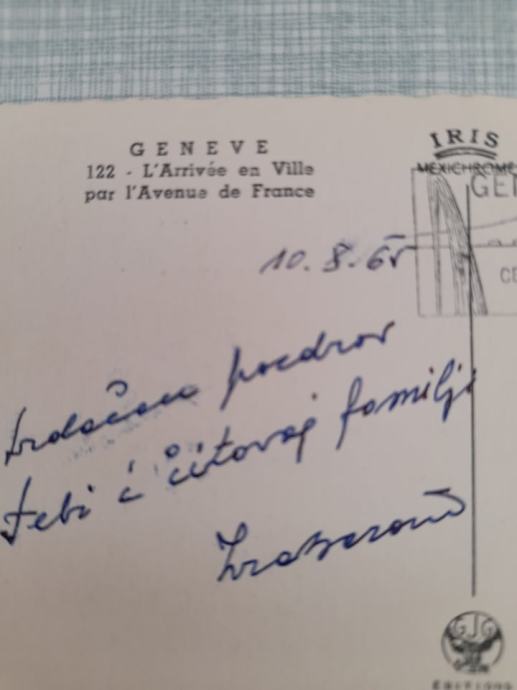 GENEVE
122 - L'Arrivée en Ville
par l'Avenue de France
IRIS
MEXICHROME
GE
10. 8. 65
Srdačan pozdrav
tebi i čitavoj familji
GJG
EDITIONS